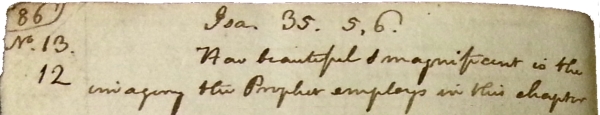 86 Isa. 35. 5, 6.
No. 13. How beautiful & magnificent is the
12 imagery the Prophet employs in this chapter